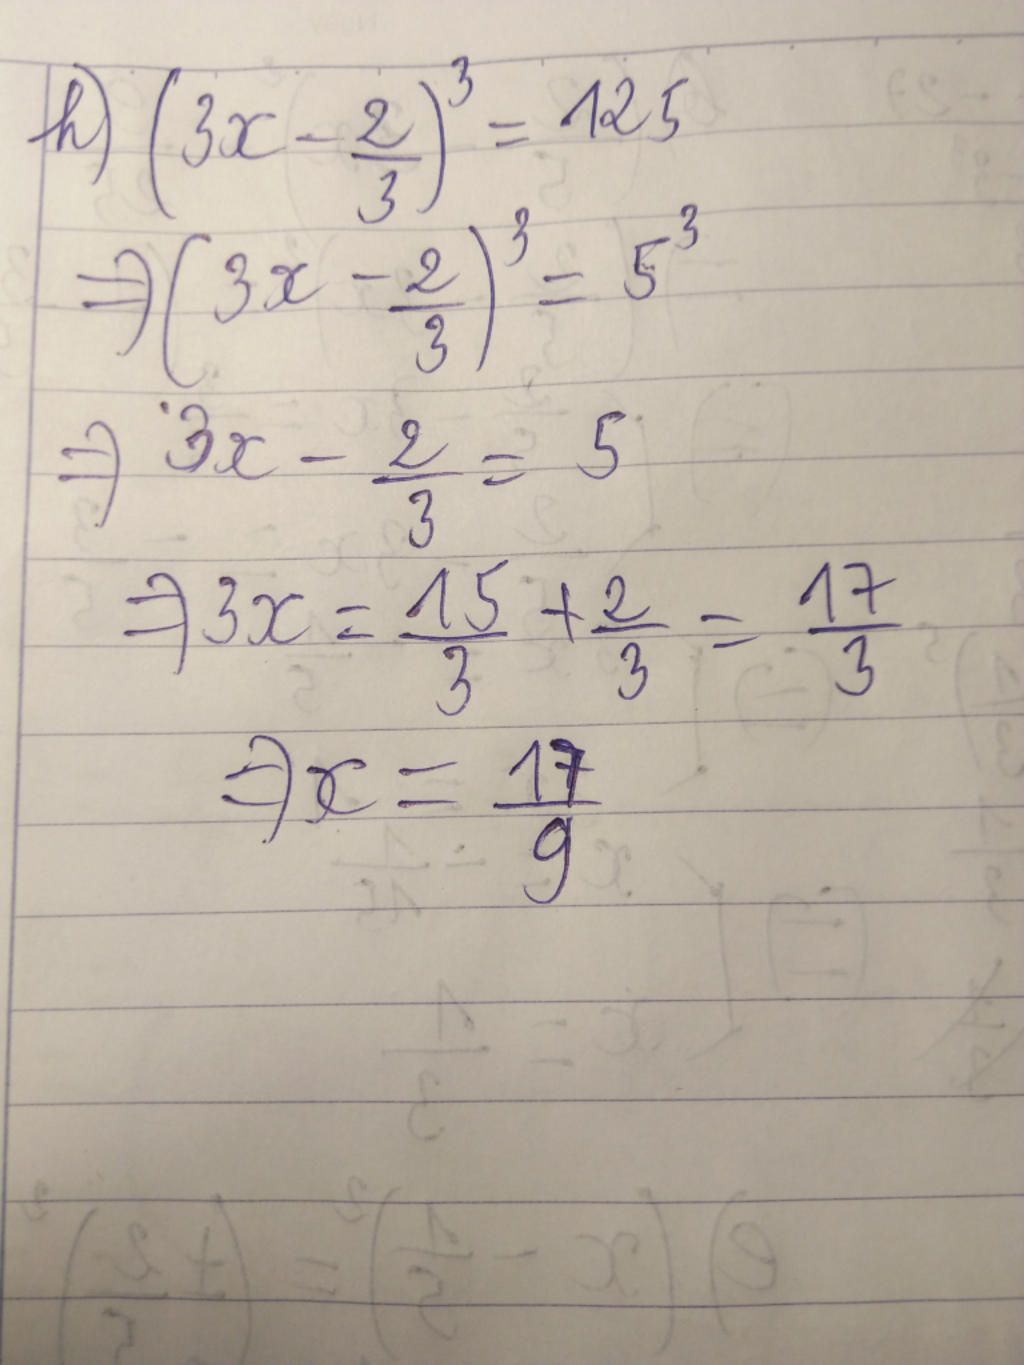 h) (3x - 2/3)^3 = 125
⇒ (3x - 2/3)^3 = 5^3
⇒ 3x - 2/3 = 5
⇒ 3x = 15/3 + 2/3 = 17/3
⇒ x = 17/9